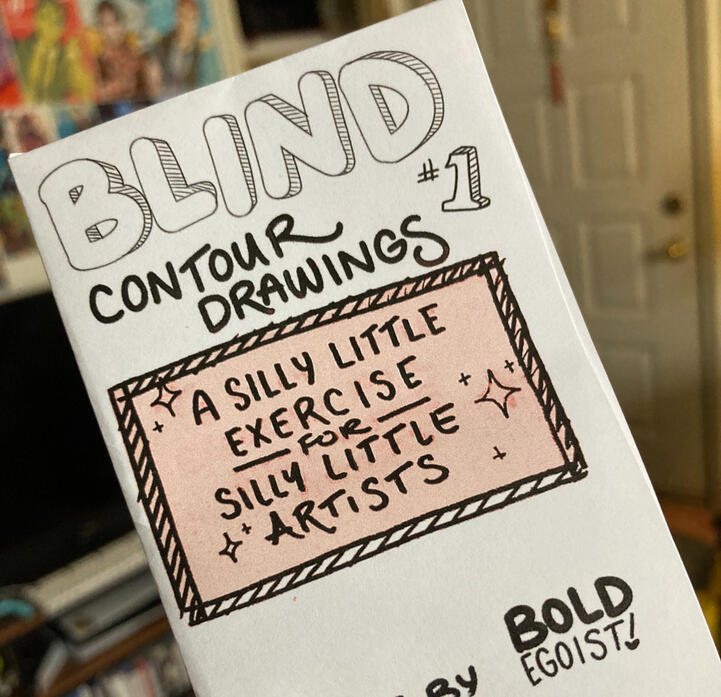 BLIND
#1
CONTOUR
DRAWINGS
A SILLY LITTLE
EXERCISE
FOR
SILLY LITTLE
ARTISTS
BY
BOLD
EGOIST!